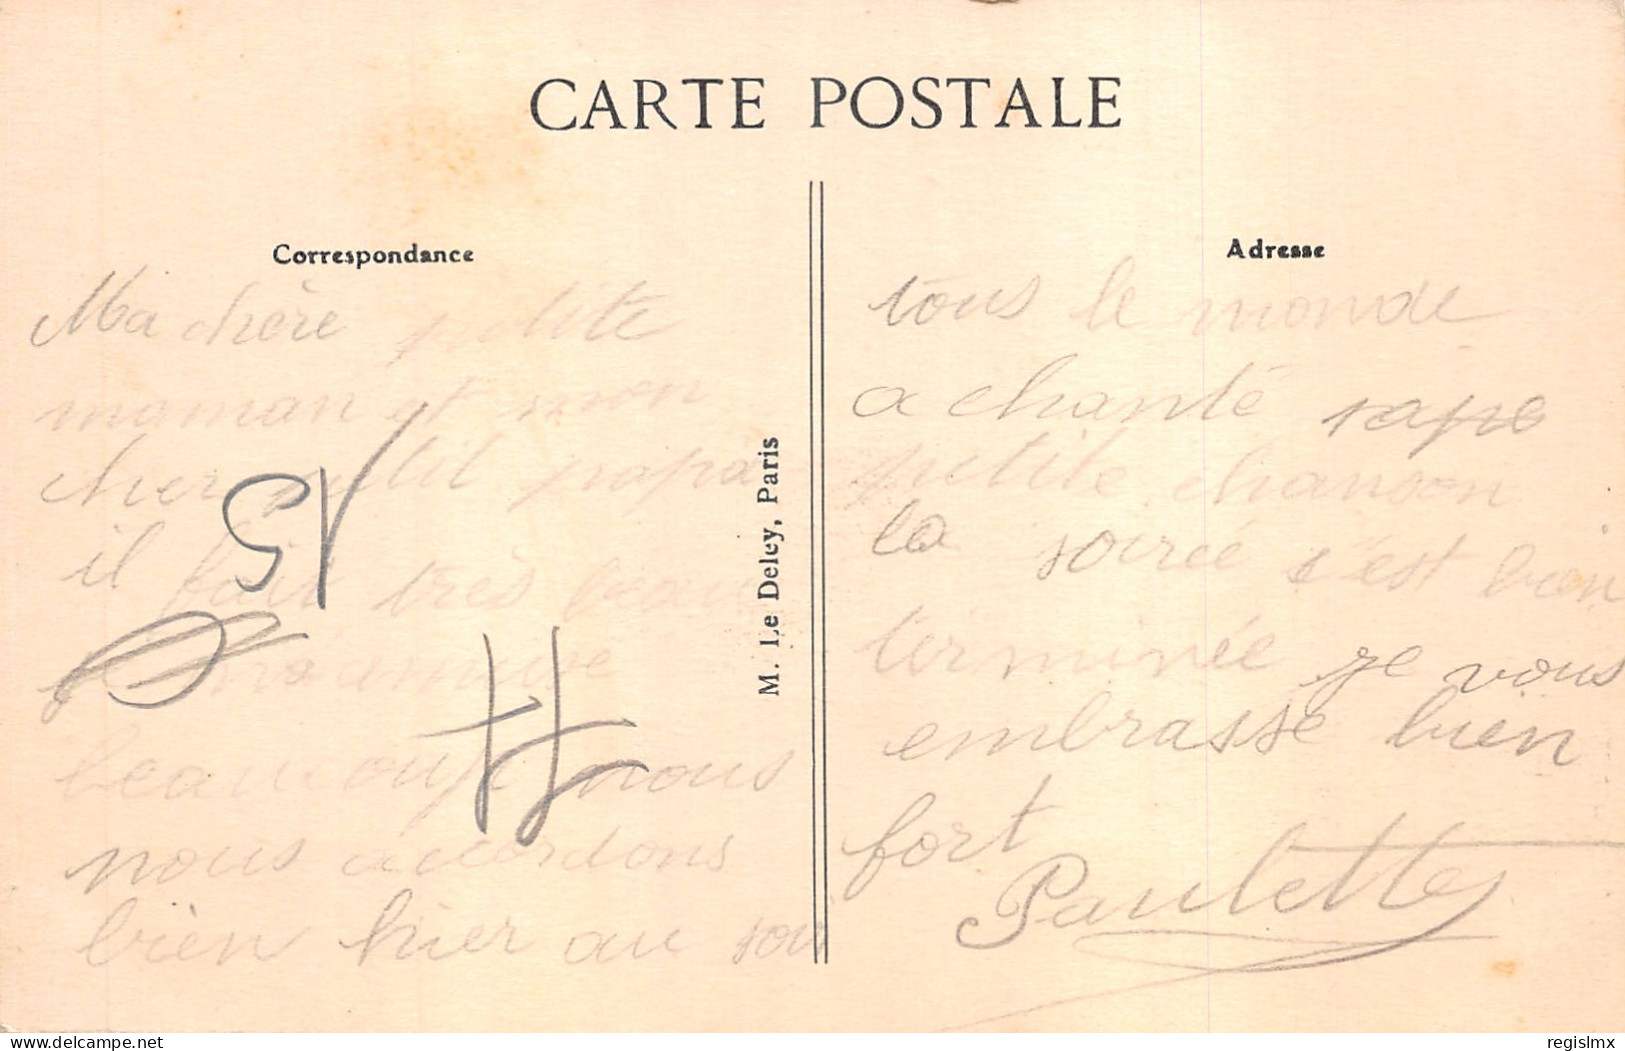 CARTE POSTALE
Correspondance
Ma chère petite
maman et mon
cher petit papa
il fait très beau
m'amuse
beaucoup nous
nous accordons
bien hier au soir
M. Le Deley, Paris
Adresse
tous le monde
a chanté sapo
petite chanson
la soirée s'est bien
terminée je vous
embrasse bien
fort
Paulette
delcampe.net
regislmx